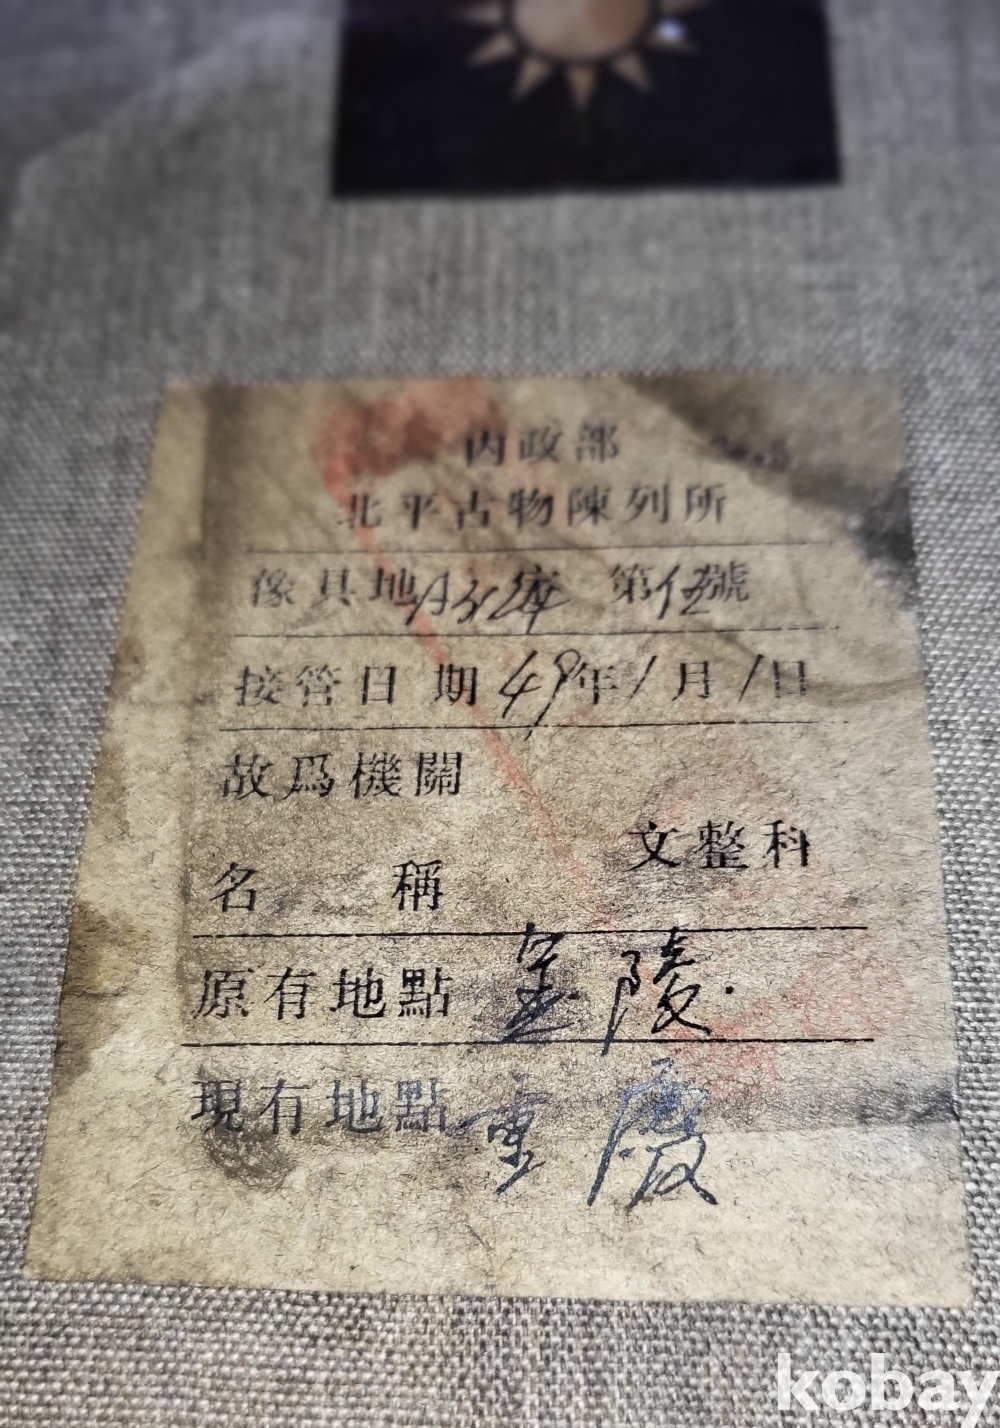 内政部
北平古物陳列所
傢具地A312库 第12號
接管日期 49年1月1日
故爲機關
文整科
名 稱
原有地點 金陵.
現有地點 重慶
kobay